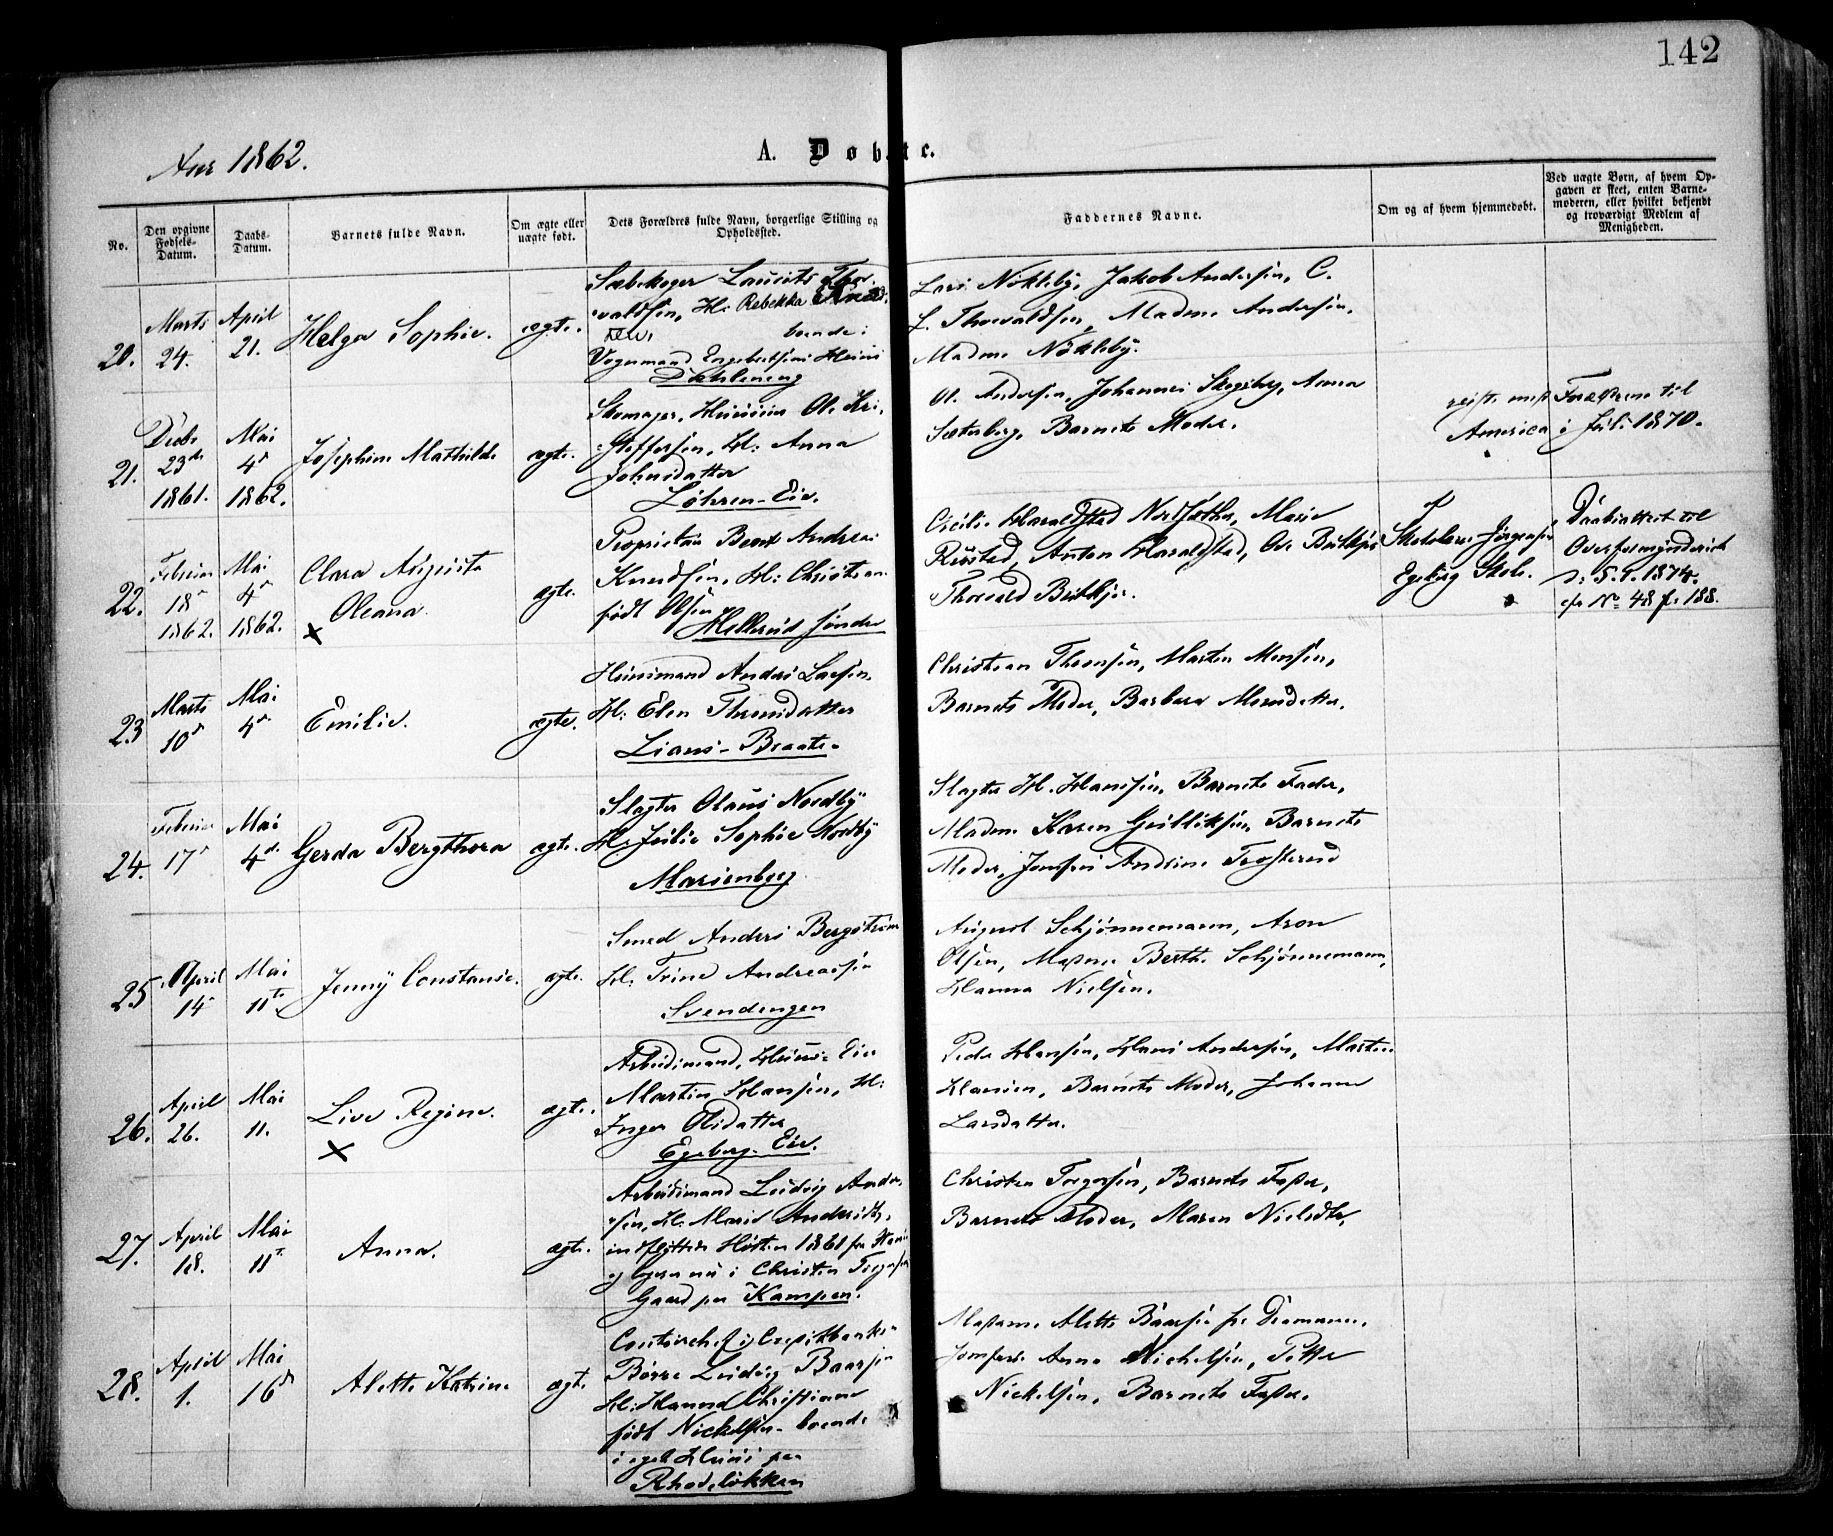 142
Aar 1862.
A. Døbte.
No.
Den opgivne Fødsels-Datum.
Daabs-Datum.
Barnets fulde Navn.
Om ægte eller uægte født.
Dets Forældres fulde Navn, borgerlige Stilling og Opholdssted.
Faddernes Navne.
Om og af hvem hjemmedøbt.
Ved uægte Børn, af hvem Op-
gaven er skeet, enten Barne-
moderen, eller hvilket bekjendt
og troværdigt Medlem af
Menigheden.
20.
Marts
24.
April
21.
Helga Sophie.
ægte.
Sæbekoger Laurits Thor-
valdsen, H: Rebekka
boende i
Vognmand Engebretsens Huus
Dæleneng
Lars Nökleby, Jakob Andersen, C.
L. Thorvaldsen, Madme Andersen,
Madme Nökleby.
21.
Decbr
23de
1861.
Mai
4de
1862.
Josephine Mathilde
ægte.
Skomager, Huuseier Ole Kri-
stoffersen, H: Anna
Johnsdatter
Løhren-Eie.
O. Andersen, Johannes Skogsby, Anna
Sæterberg, Barnets Moder.
reist med Forældrene til
America i Juli 1870.
22.
Februar
18de
1862.
Mai
4de
1862.
Clara Augusta
Oleana.
x
ægte.
Proprietair Bent Andreas
Knudsen, H: Christiane
født Olsen
Hellerud søndre
Cicilie Haraldstad Nordsæther, Marie
Rustad, Anton Haraldstad, Ove Brekkje
Thorvald Brekkje.
af
Skolelærer Jørgensen
Egeberg Skole.
Daabsattest til
Overformynderiet
d: 5.1.1874.
cfr No 48 f. 188.
23
Marts
10de
Mai
4de
Emilie.
ægte.
Huusmand Anders Larsen
H: Elen Thorsdatter
Lians-Braate
Christian Thorsen, Morten Monsen,
Barnets Moder, Barbara Monsdatter.
24.
Februar
17de
Mai
4de
Gerda Bergthora
ægte.
Slagter Olaus Nordby
H: Julie Sophie Nordby
Marienberg
Slagter H. Hanssen, Barnets Fader,
Madme Karen Gulliksen, Barnets
Moder, Jomfru Andrine Trosterud
25
April
14de
Mai
11te
Jenny Constanse.
ægte.
Smed Anders Bergström
H: Trine Andreassen
Svendengen
August Schjønnemann, Aron
Olsen, Madme Berthe Schjønnemann,
Hanna Nielsen.
26.
April
26.
Mai
11.
Live Regine.
x
ægte.
Arbeidsmand, Huus-Eier
Martin Hansen, H:
Inger Olsdatter
Egeberg-Eie.
Peder Hansen, Hans Andersen, Martin
Hansen, Barnets Moder, Johanne
Larsdatter.
27.
April
18.
Mai
11te
Anna.
ægte.
Arbeidsmand Ludvig Ander-
sen, H: Maria Andersdtr,
indflyttede Høsten 1861 fra
og logerer nu i Christen Torgersens
Gaard paa Kampen.
Christen Torgersen, Barnets Fader,
Barnets Moder, Maren Nielsdtr.
28.
April
1.
Mai
16de
Alette Katrine
ægte.
Contorchef i Creditbanken
Børre Ludvig Baarsen
H: Hanna Christiane
født Nickelsen boende
i eget Huus paa
Rhodeløkken
Madame Alette Baarsen fra Drammen,
Jomfru Anna Nickelsen, Petter
Nickelsen, Barnets Fader.